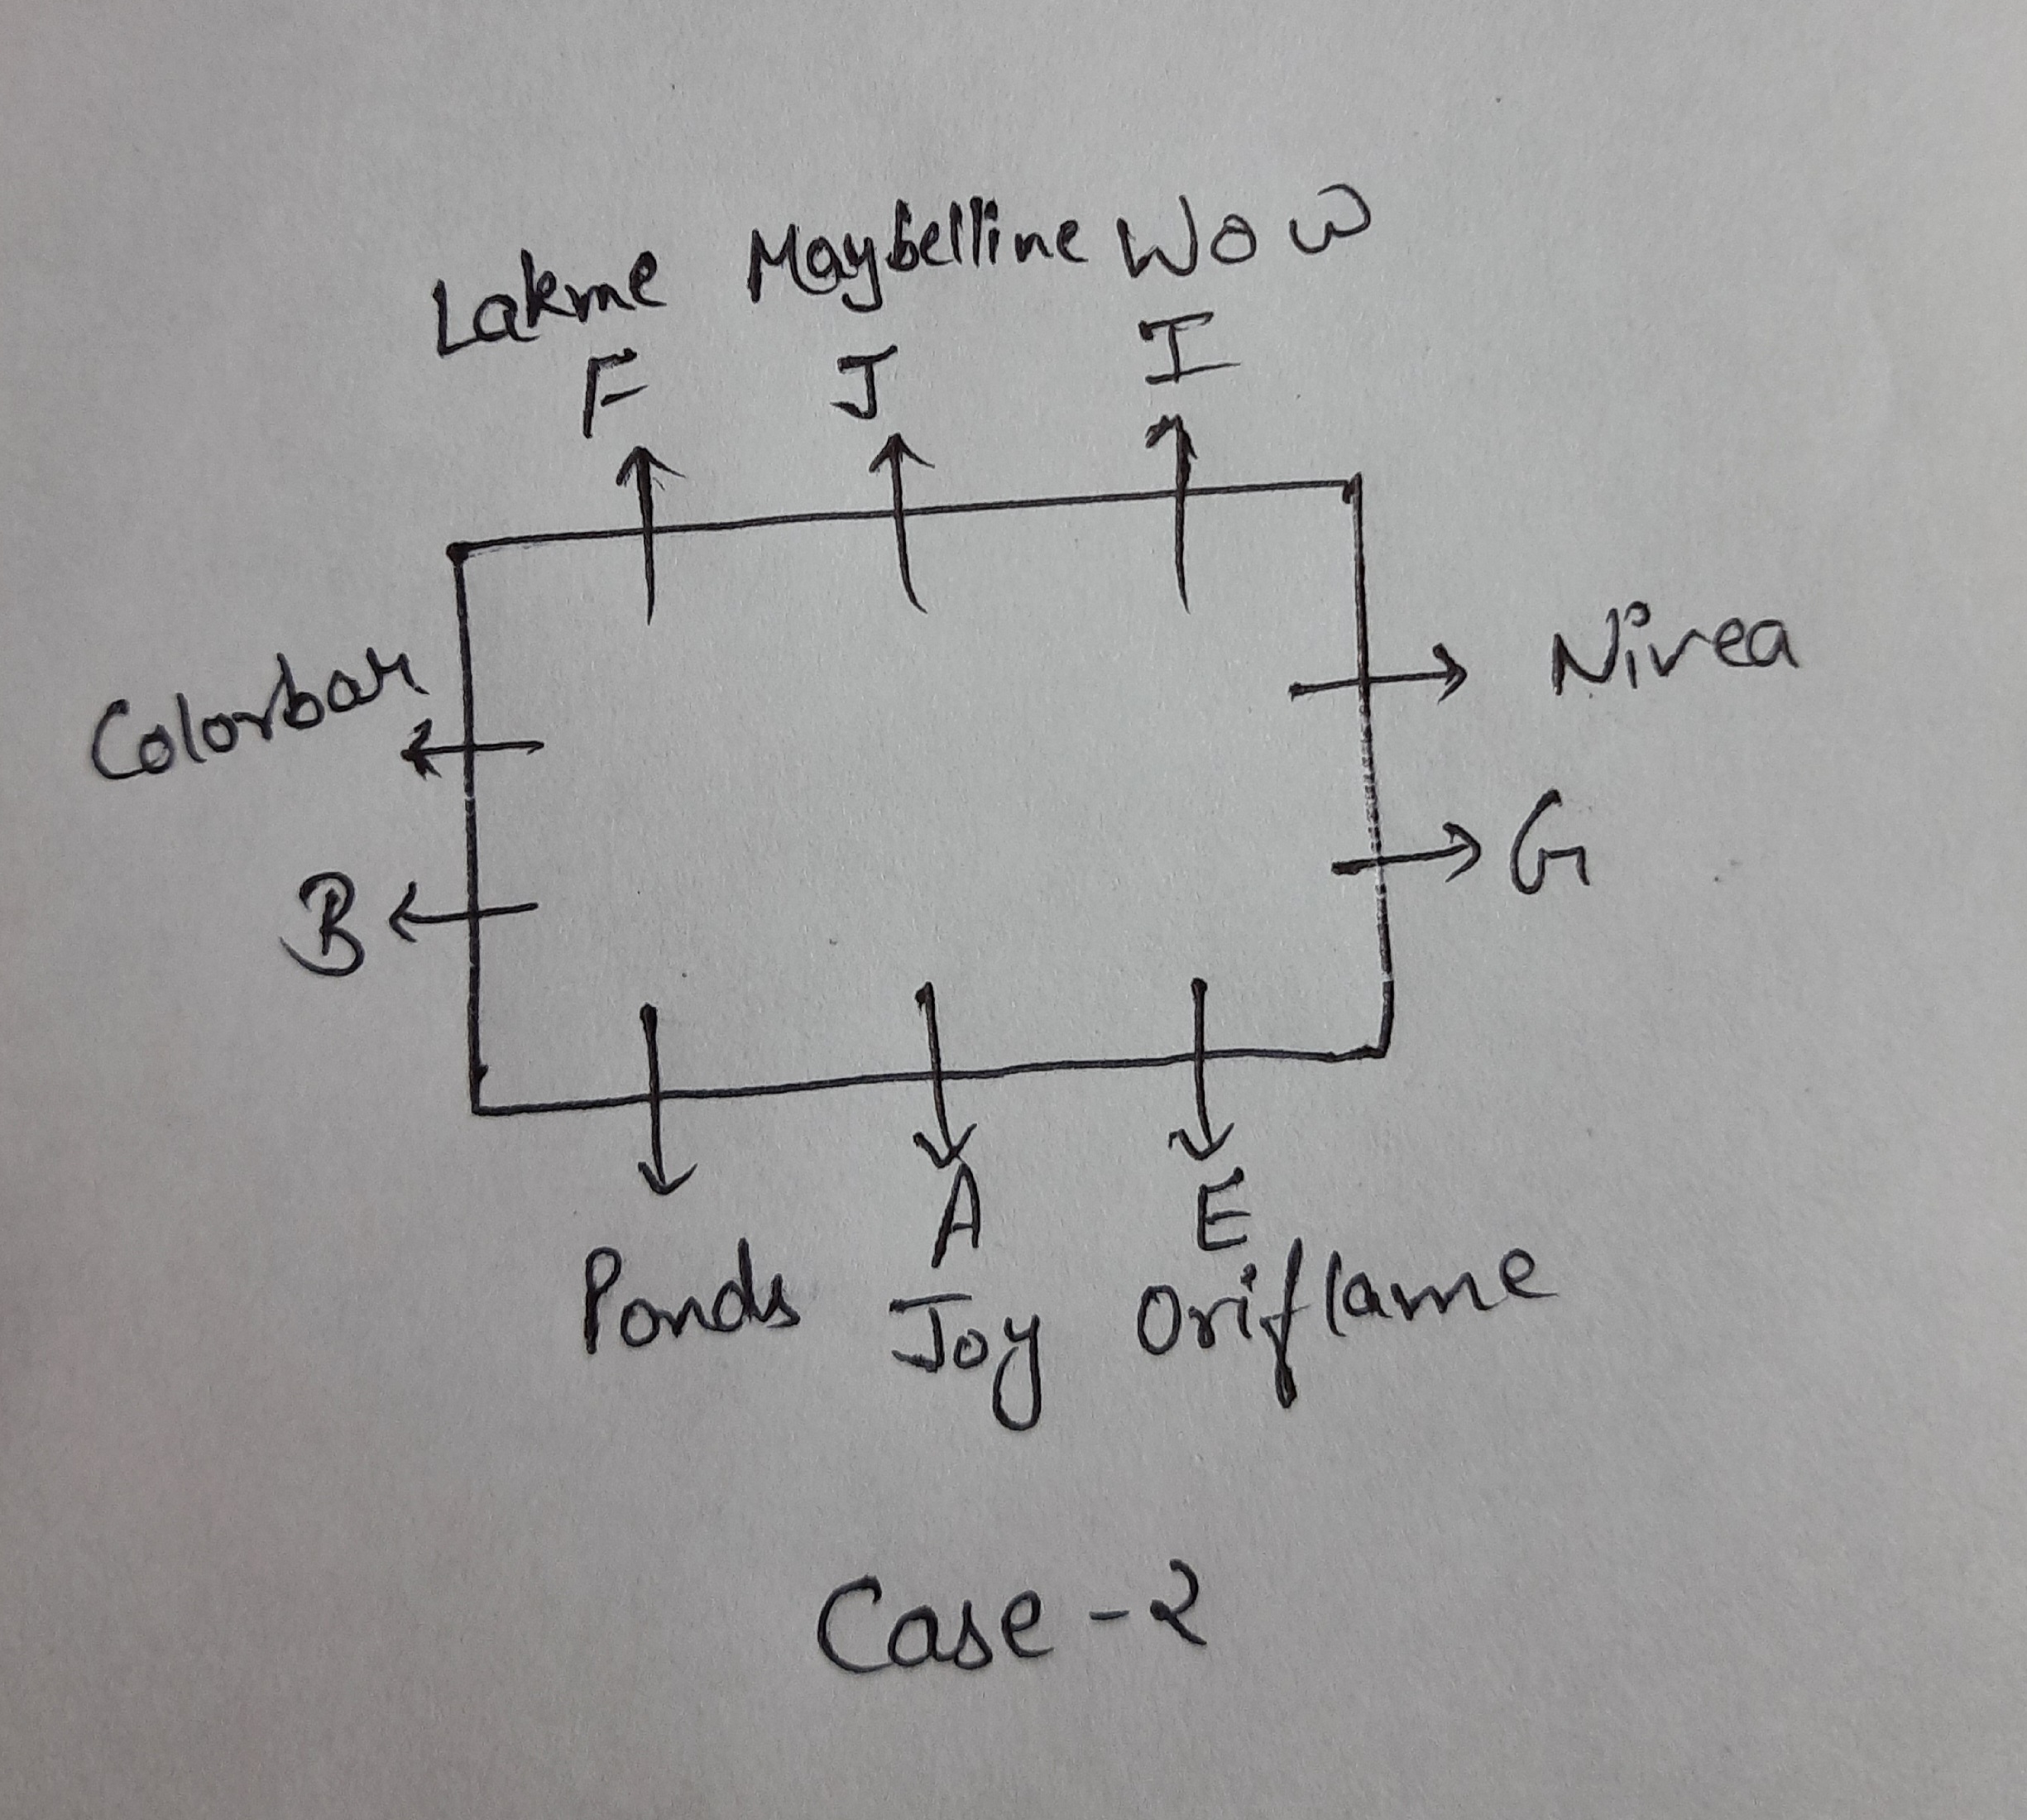 Lakme Maybelline Wow
F J I
Colorbar
Nivea
B
G
A E
Ponds Joy Oriflame
Case-2